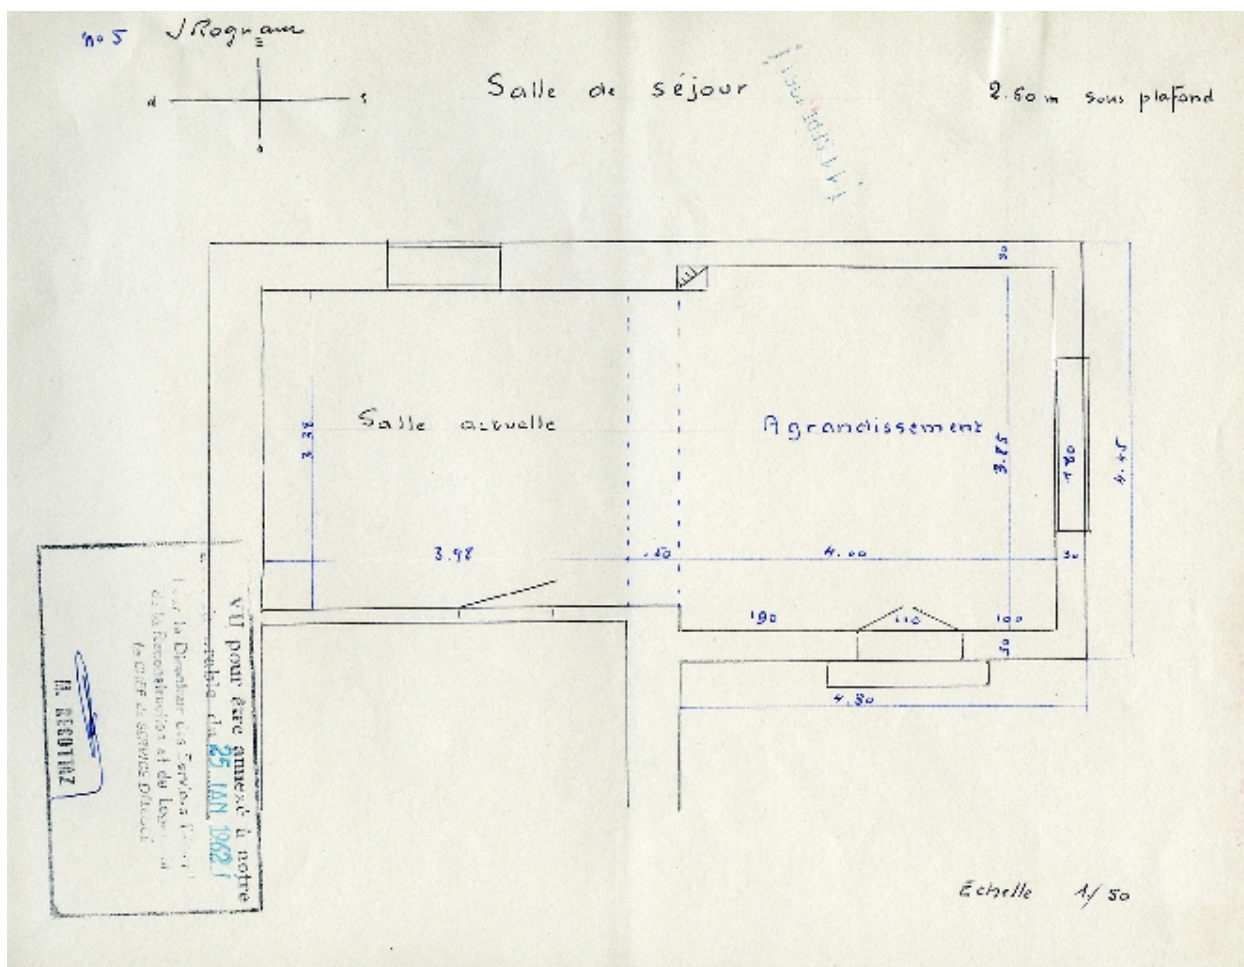 no 5
J Rognam
Salle de séjour
2.50 m sous plafond
Salle actuelle
Agrandissement
3.38
3.85
180
4.45
30
3.98
.50
4.00
30
190
110
100
4.30
VU pour être annexé à notre
du 25 JAN 1962
la Directeur des Services
de la Reconstruction et du
le CHEF de SERVICE
M. REGOTTAZ
Echelle 1/50